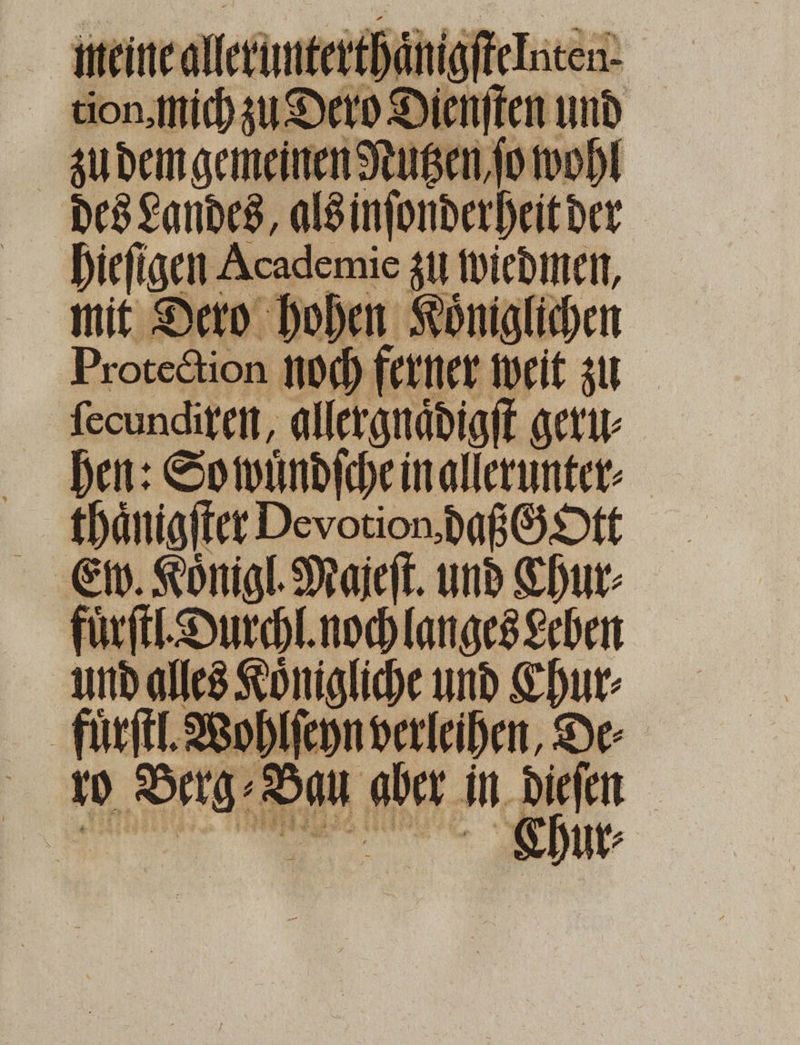 meine allerunterthaͤnigſte Inten-
tion, mich zu Dero Dienſten und
zu dem gemeinen Nutzen, ſo wohl
des Landes, als inſonderheit der
hieſigen Academie zu wiedmen,
mit Dero hohen Koͤniglichen
Protection noch ferner weit zu
ſecundiren, allergnaͤdigſt geru⸗
hen: So wuͤndſche in allerunter⸗
thaͤnigſter Devotion, daß GOtt
Ew. Koͤnigl. Majeſt. und Chur⸗
fuͤrſtl. Durchl. noch langes Leben
und alles Koͤnigliche und Chur⸗
fuͤrſtl. Wohlſeyn verleihen, De⸗
ro Berg⸗Bau aber in dieſen
Chur⸗